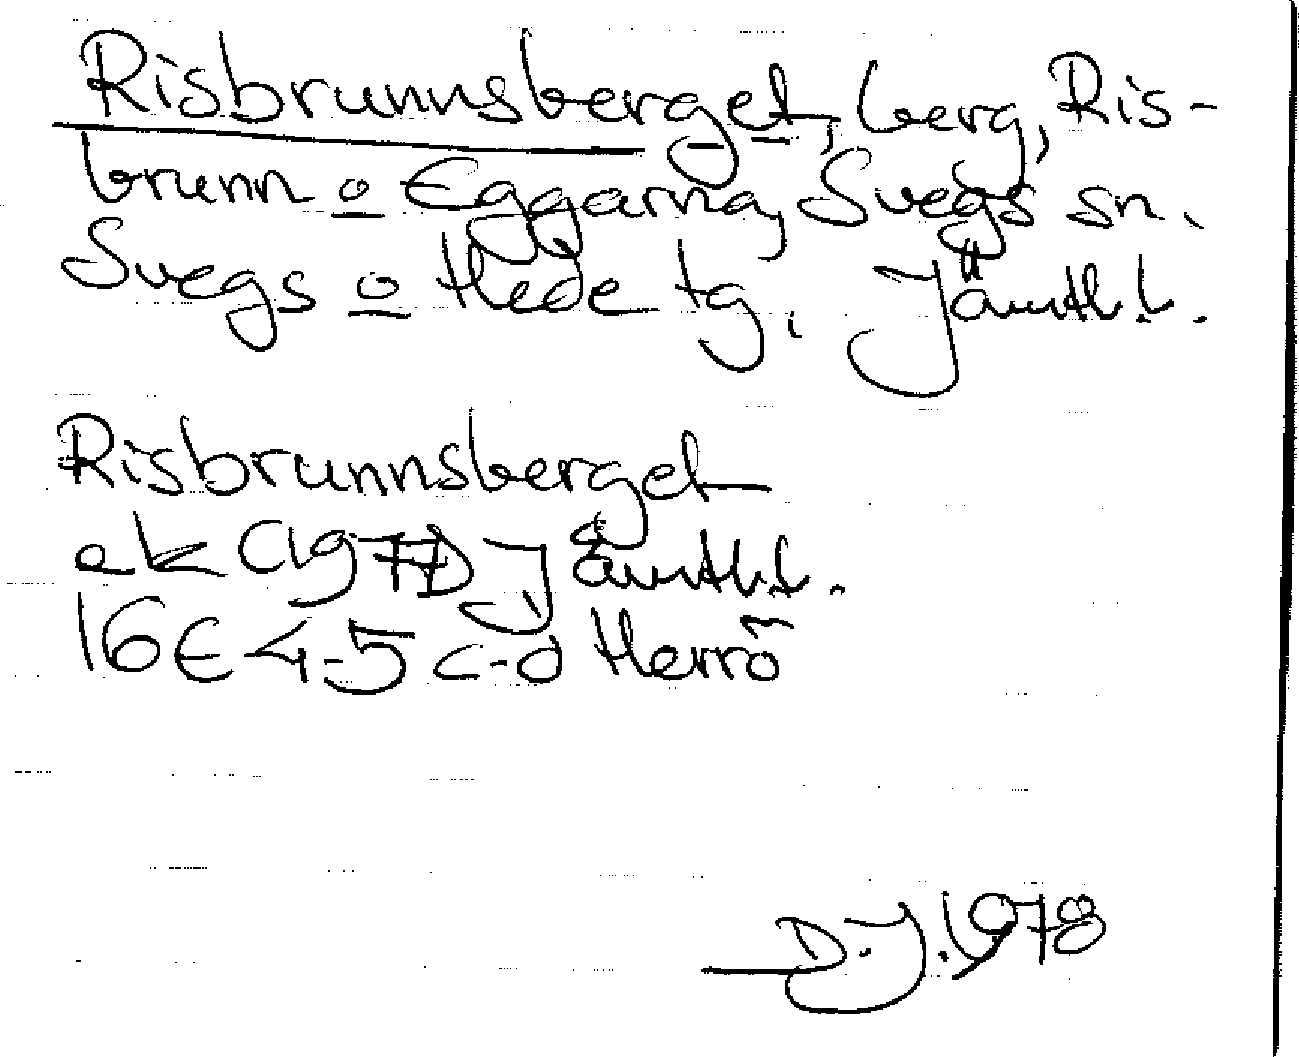 Risbrunnsberget, berg, Ris-
brunn o Eggarna, Svegs sn.
Svegs o Hede tg. Jämtl.l.
Risbrunnsberget
ek Jämtl.l.
16E 4-5 c-d Herrö
D.J. 1978